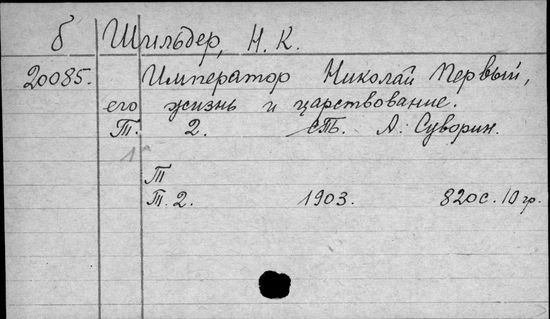 б Шильдер, Н. К.
20085. Император Николай Первый,
его жизнь и царствование.
Т. 2. СПБ. А. Суворин.
Т
Т. 2. 1903. 820 с. 10 гр.